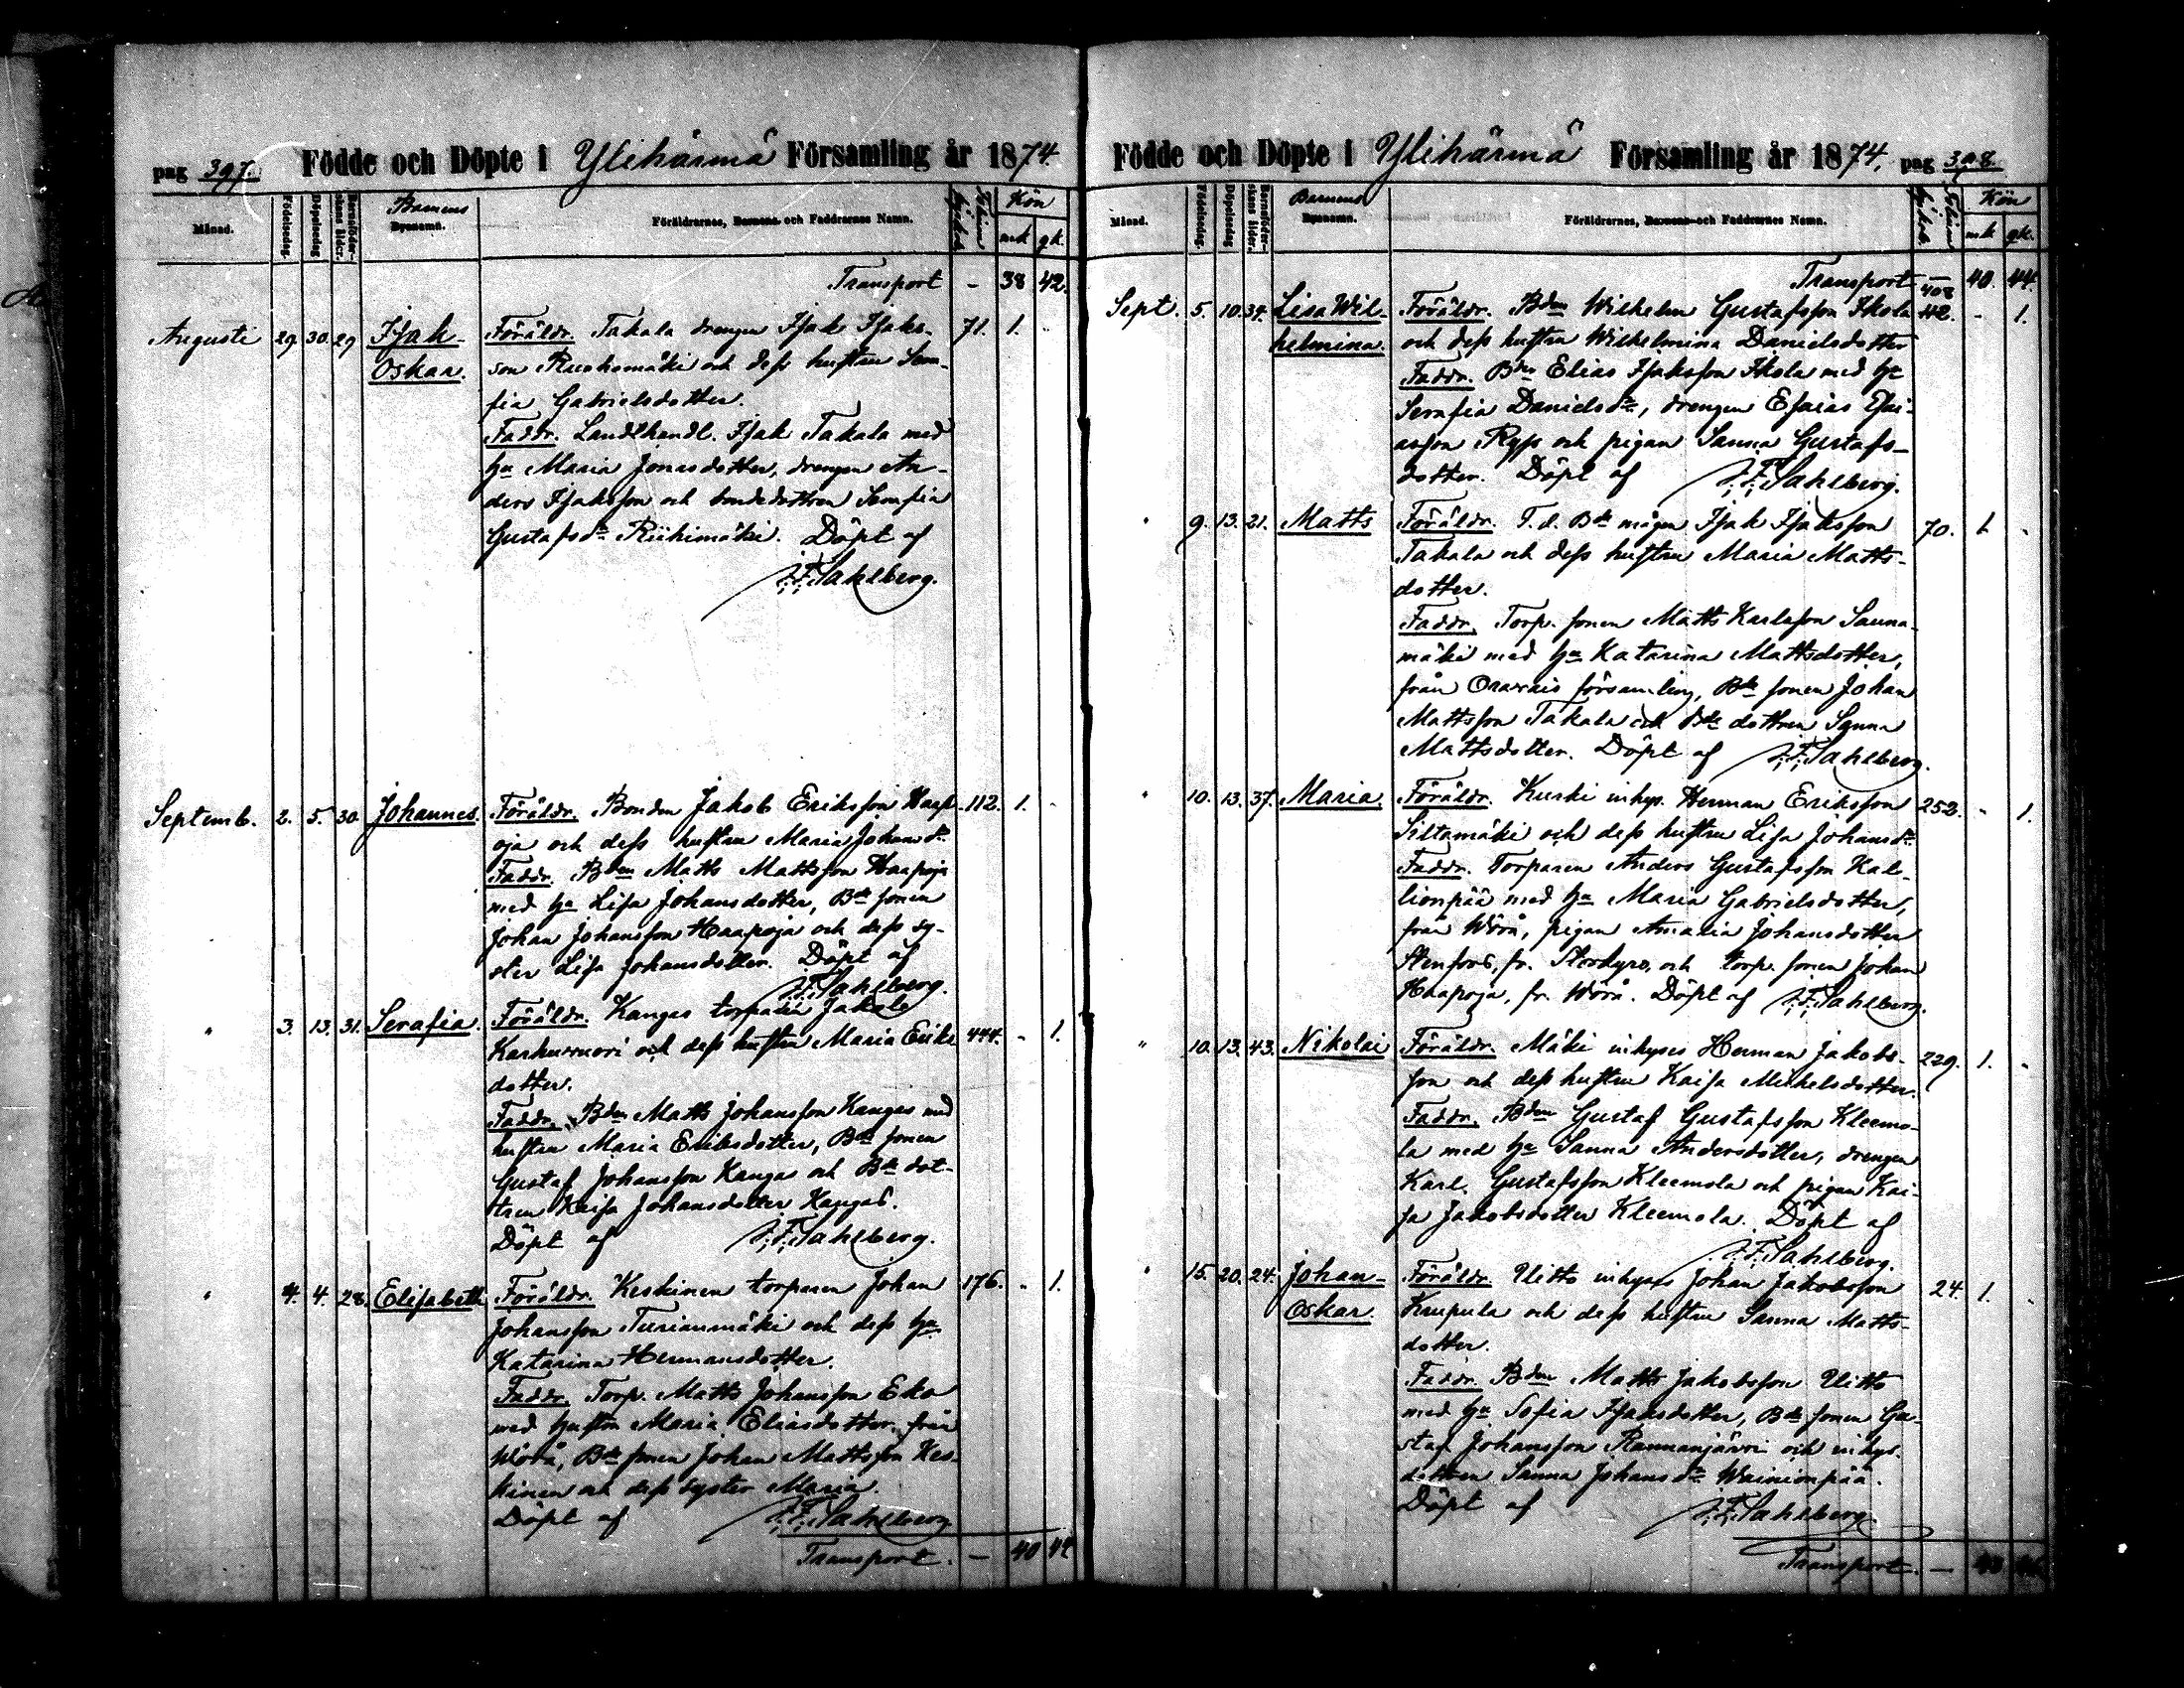 pag 397. Födde och Döpte i Ylihärmä Församling år 1874.
Månad. Födelsedag. Döpelsedag Barnaföderskans ålder. Barnens Byanamn. Föräldrarnes, Barnens och Faddrarnes Namn. Kön
mk gk.
Transport - 38 42.
Augusti 29. 30. 29 Isak Föräldr. Takala drengen Isak Isaks- 71. 1. -
Oskar. son Ruohomäki och dess hustru Sera-
fia Gabrielsdotter.
Faddr. Landthandl. Isak Takala med
hu Maria Jonasdotter, drengen An-
ders Isaksson och bondedottren Serafia
Gustafsdr Riihimäki. Döpt af
J. F. Sahlberg.
Septemb. 2. 5. 30. Johannes. Föräldr. Bonden Jakob Eriksson Haap- 112. 1. -
oja och dess hustru Maria Johansdr
Faddr. Bden Matts Mattsson Haapoja
med hu Lisa Johansdotter, Bde sonen
Johan Johansson Haapoja och dess sy-
ster Lisa Johansdotter. Döpt af
J. F. Sahlberg.
" 3. 13. 31. Serafia. Föräldr. Kangas torparen Jakob
Karhuvuori och dess hustru Maria Eriks 444. - 1.
dotter.
Faddr. Bden Matts Johansson Kangas med
hustru Maria Eriksdotter, Bde sonen
Gustaf Johansson Kangas och Bde dot-
tren Kaisa Johansdotter Kangas.
Döpt af J. F. Sahlberg.
" 4. 4. 28. Elisabeth Föräldr. Keskinen torparen Johan 176. - 1.
Johansson Turianmäki och dess hu
Katarina Hermansdotter.
Faddr. Torp. Matts Johansson Eko
med hustru Maria Eliasdotter, från
Wörå, Bde sonen Johan Mattsson Kes-
kinen och dess syster Maria.
Döpt af J. F. Sahlberg
Transport. - 40 44
Födde och Döpte i Ylihärmä Församling år 1874. pag 398.
Månad. Födelsedag. Döpelsedag Barnaföderskans ålder. Barnens Byanamn. Föräldrarnes, Barnens och Faddrarnes Namn. Kön
mk gk.
Transport - 40. 44.
408
Sept. 5. 10. 34. Lisa Wil- Föräldr. Bden Wilhelm Gustafsson Ikola 412. - 1.
helmina. och dess hustru Wilhelmina Danielsdotter
Faddr. Bden Elias Isaksson Ikola med hu
Serafia Danielsdr, drengen Esaias Esai-
asson Ryss och pigan Sanna Gustafs-
dotter. Döpt af J. F. Sahlberg.
" 9. 13. 21. Matts Föräldr. T. d. Bde mågen Isak Isaksson 70. 1. -
Takala och dess hustru Maria Matts-
dotter.
Faddr. Torp. sonen Matts Karlsson Sauna-
mäki med hu Katarina Mattsdotter,
från Oravais församling, Bde sonen Johan
Mattsson Takala och Bde dottren Sanna
Mattsdotter. Döpt af J. F. Sahlberg.
" 10. 13. 37. Maria. Föräldr. Kurki inhys. Herman Eriksson 252. - 1.
Siltamäki och dess hustru Lisa Johansdr
Faddr. Torparen Anders Gustafsson Kal-
lionpää med hu Maria Gabrielsdotter,
från Wörå, pigan Amalia Johansdotter
Stenfors, fr. Storkyro, och torp. sonen Johan
Haapoja, fr. Wörå. Döpt af J. F. Sahlberg.
" 10. 13. 43. Nikolai Föräldr. Mäki inhyses Herman Jakobs- 229. 1. -
son och dess hustru Kaisa Michelsdotter.
Faddr. Bden Gustaf Gustafsson Kleemo-
la med hu Sanna Andersdotter, drengen
Karl Gustafsson Kleemola och pigan Kai-
sa Jakobsdotter Kleemola. Döpt af
J. F. Sahlberg.
" 15. 20. 24. Johan- Föräldr. Uitto inhyses Johan Jakobsson 24. 1. -
Oskar. Knupula och dess hustru Sanna Matts-
dotter.
Faddr. Bden Matts Jakobsson Uitto
med hu Sofia Isaksdotter, Bde sonen Gu-
staf Johansson Rannanjärvi och inhys.
dottren Sanna Johansdr Wainionpää.
Döpt af J. F. Sahlberg.
Transport. -